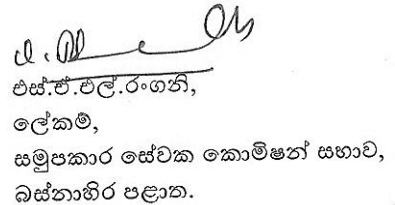 එස්.ඒ.එල්.රංගනි,
ලේකම්,
සමුපකාර සේවක කොමිෂන් සභාව,
බස්නාහිර පළාත.